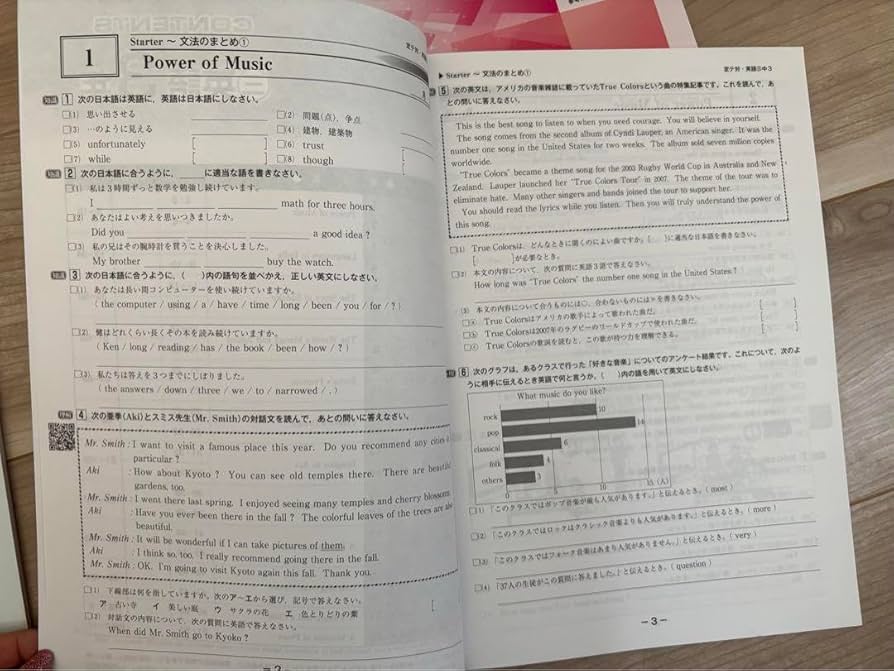 CONTENTS
1
Starter ～ 文法のまとめ①
定テ対・英語
Power of Music
知識 1 次の日本語は英語に，英語は日本語にしなさい。
□(1) 思い出させる
□(2) 問題(点)，争点
□(3) …のように見える
□(4) 建物，建築物
□(5) unfortunately
□(6) trust
□(7) while
□(8) though
知識 2 次の日本語に合うように，____に適当な語を書きなさい。
□(1) 私は3時間ずっと数学を勉強し続けています。
I ____ ____ ____ math for three hours.
□(2) あなたはよい考えを思いつきましたか。
Did you ____ ____ ____ a good idea ?
□(3) 私の兄はその腕時計を買うことを決心しました。
My brother ____ ____ buy the watch.
知識 3 次の日本語に合うように，（　）内の語句を並べかえ，正しい英文にしなさい。
□(1) あなたは長い間コンピューターを使い続けていますか。
( the computer / using / a / have / time / long / been / you / for / ? )
□(2) 健はどれくらい長くその本を読み続けていますか。
( Ken / long / reading / has / the book / been / how / ? )
□(3) 私たちは答えを3つまでにしぼりました。
( the answers / down / three / we / to / narrowed / . )
4 次の亜季(Aki)とスミス先生(Mr. Smith)の対話文を読んで，あとの問いに答えなさい。
Mr. Smith : I want to visit a famous place this year. Do you recommend any cities in
particular ?
Aki : How about Kyoto ? You can see old temples there. There are beautiful
gardens, too.
Mr. Smith : I went there last spring. I enjoyed seeing many temples and cherry blossoms.
Aki : Have you ever been there in the fall ? The colorful leaves of the trees are also
beautiful.
Mr. Smith : It will be wonderful if I can take pictures of them.
Aki : I think so, too. I really recommend going there in the fall.
Mr. Smith : OK. I'm going to visit Kyoto again this fall. Thank you.
□(1) 下線部は何を指していますか。次のア～エから選び，記号で答えなさい。
ア 古い寺 イ 美しい庭 ウ サクラの花 エ 色とりどりの葉
□(2) 対話文の内容について，次の質問に英語で答えなさい。
When did Mr. Smith go to Kyoko ?
－2－
▶ Starter ～ 文法のまとめ①
定テ対・英語三中3
5 次の英文は，アメリカの音楽雑誌に載っていたTrue Colorsという曲の特集記事です。これを読んで，あ
との問いに答えなさい。
This is the best song to listen to when you need courage. You will believe in yourself.
The song comes from the second album of Cyndi Lauper, an American singer. It was the
number one song in the United States for two weeks. The album sold seven million copies
worldwide.
"True Colors" became a theme song for the 2003 Rugby World Cup in Australia and New
Zealand. Lauper launched her "True Colors Tour" in 2007. The theme of the tour was to
eliminate hate. Many other singers and bands joined the tour to support her.
You should read the lyrics while you listen. Then you will truly understand the power of
this song.
□(1) True Colorsは，どんなときに聞くのによい曲ですか。[　]に適当な日本語を書きなさい。
[　]が必要なとき。
□(2) 本文の内容について，次の質問に英語3語で答えなさい。
How long was "True Colors" the number one song in the United States ?
(3) 本文の内容について合うものには○，合わないものには×を書きなさい。
□ⓐ True Colorsはアメリカの歌手によって歌われた曲だ。
□ⓑ True Colorsは2007年のラグビーのワールドカップで使われた曲だ。
□ⓒ True Colorsの歌詞を読むと，この歌が持つ力を理解できる。
6 次のグラフは，あるクラスで行った「好きな音楽」についてのアンケート結果です。これについて，次のよ
うに相手に伝えるとき英語で何と言うか，（　）内の語を用いて英文にしなさい。
What music do you like?
rock 10
pop 14
classical 6
folk 4
others 3
0 5 10 15 (人)
□(1) 「このクラスではポップ音楽が最も人気があります。」と伝えるとき。( most )
□(2) 「このクラスではロックはクラシック音楽よりも人気があります。」と伝えるとき。( more )
□(3) 「このクラスではフォーク音楽はあまり人気がありません。」と伝えるとき。( very )
□(4) 「37人の生徒がこの質問に答えました。」と伝えるとき。( question )
－3－